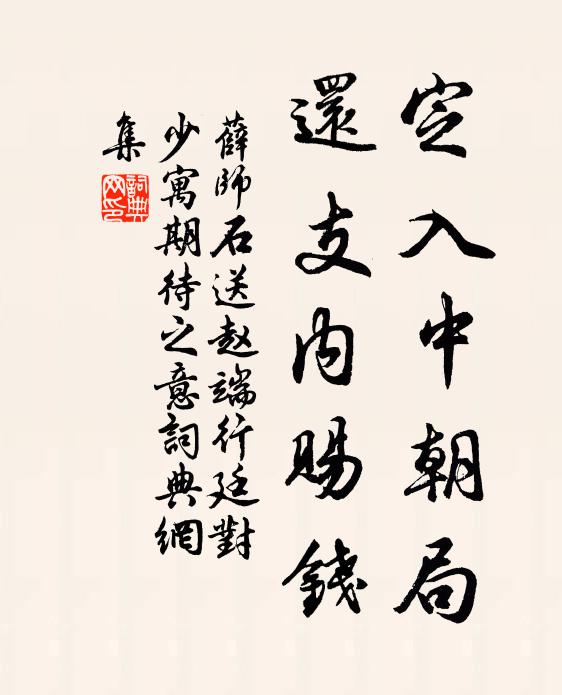 定入中朝局
還支内賜錢
薛師石送赵端行廷對
少寓期待之意詞典網
集
詞典
网印